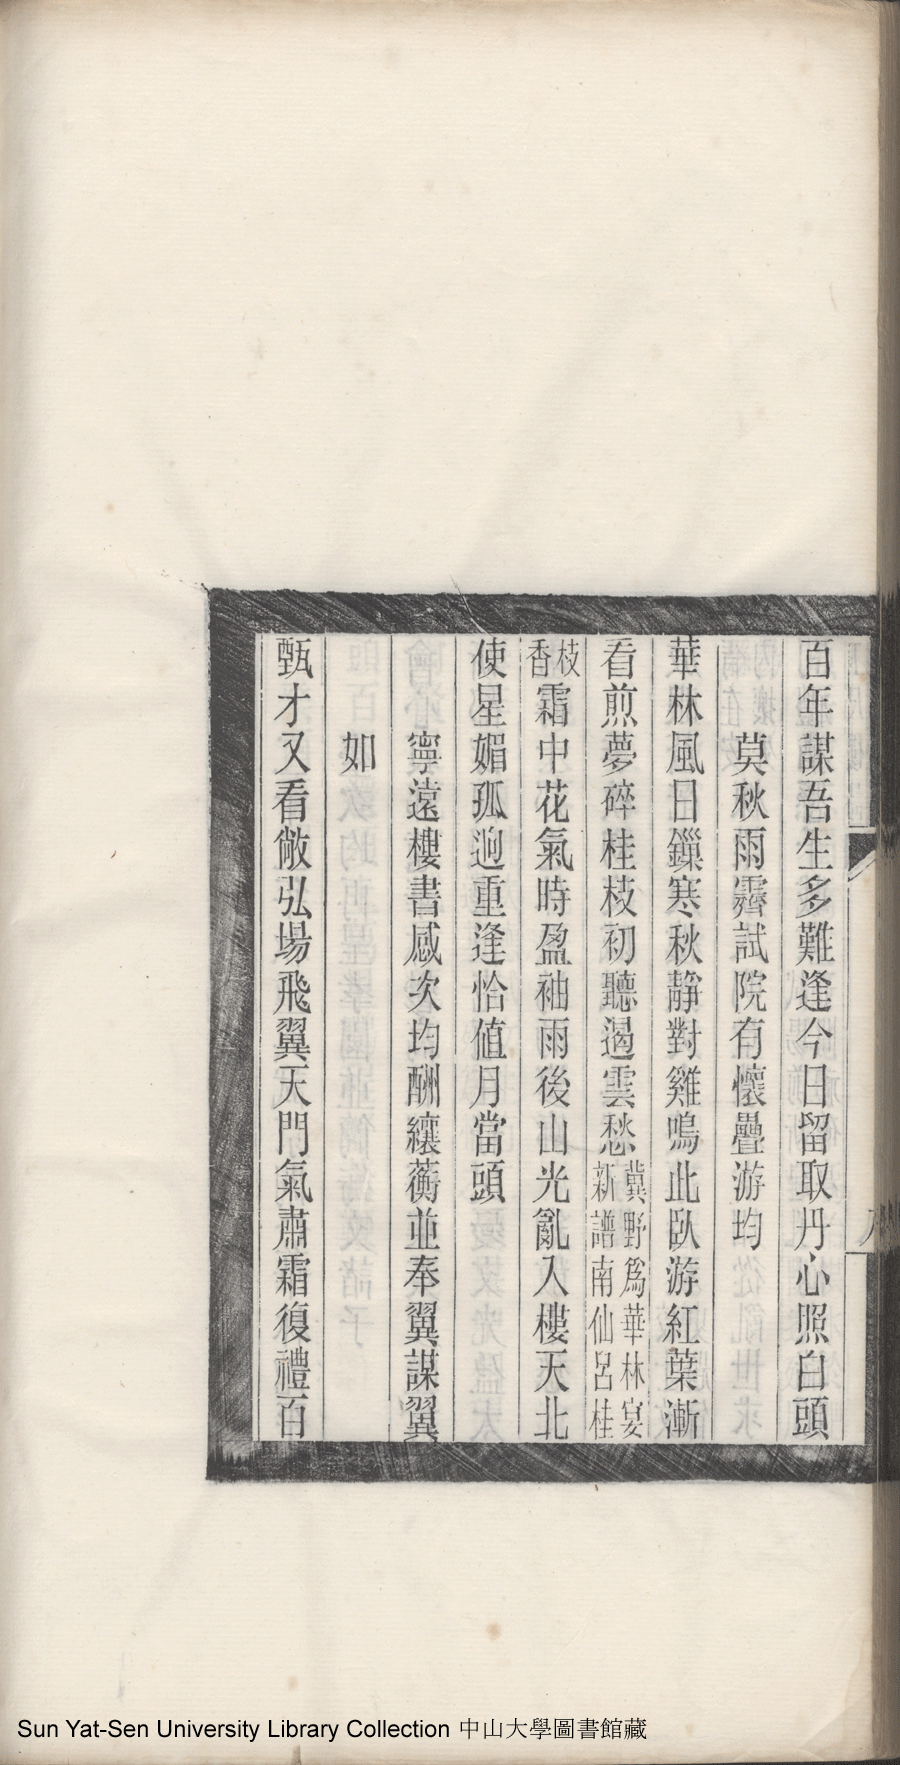 百年謀吾生多難逢今日留取丹心照白頭
莫秋雨霽試院有懷疊游均
華林風日鏁寒秋靜對雞鳴此臥游紅葉漸
看煎夢碎桂枝初聽遏雲愁冀野爲華林宴新譜南仙呂桂
枝香霜中花氣時盈袖雨後山光亂入樓天北
使星媚孤逈重逢恰值月當頭
寧遠樓書感次均酬纕蘅並奉翼謀翼
如
甄才又看敞弘場飛翼天門氣肅霜復禮百
Sun Yat-Sen University Library Collection 中山大學圖書館藏